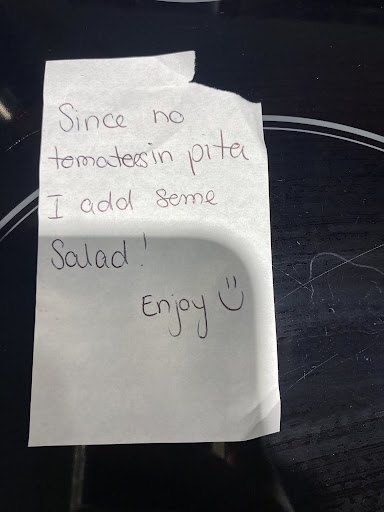 Since no
tomatoes in pita
I add some
Salad!
Enjoy :)